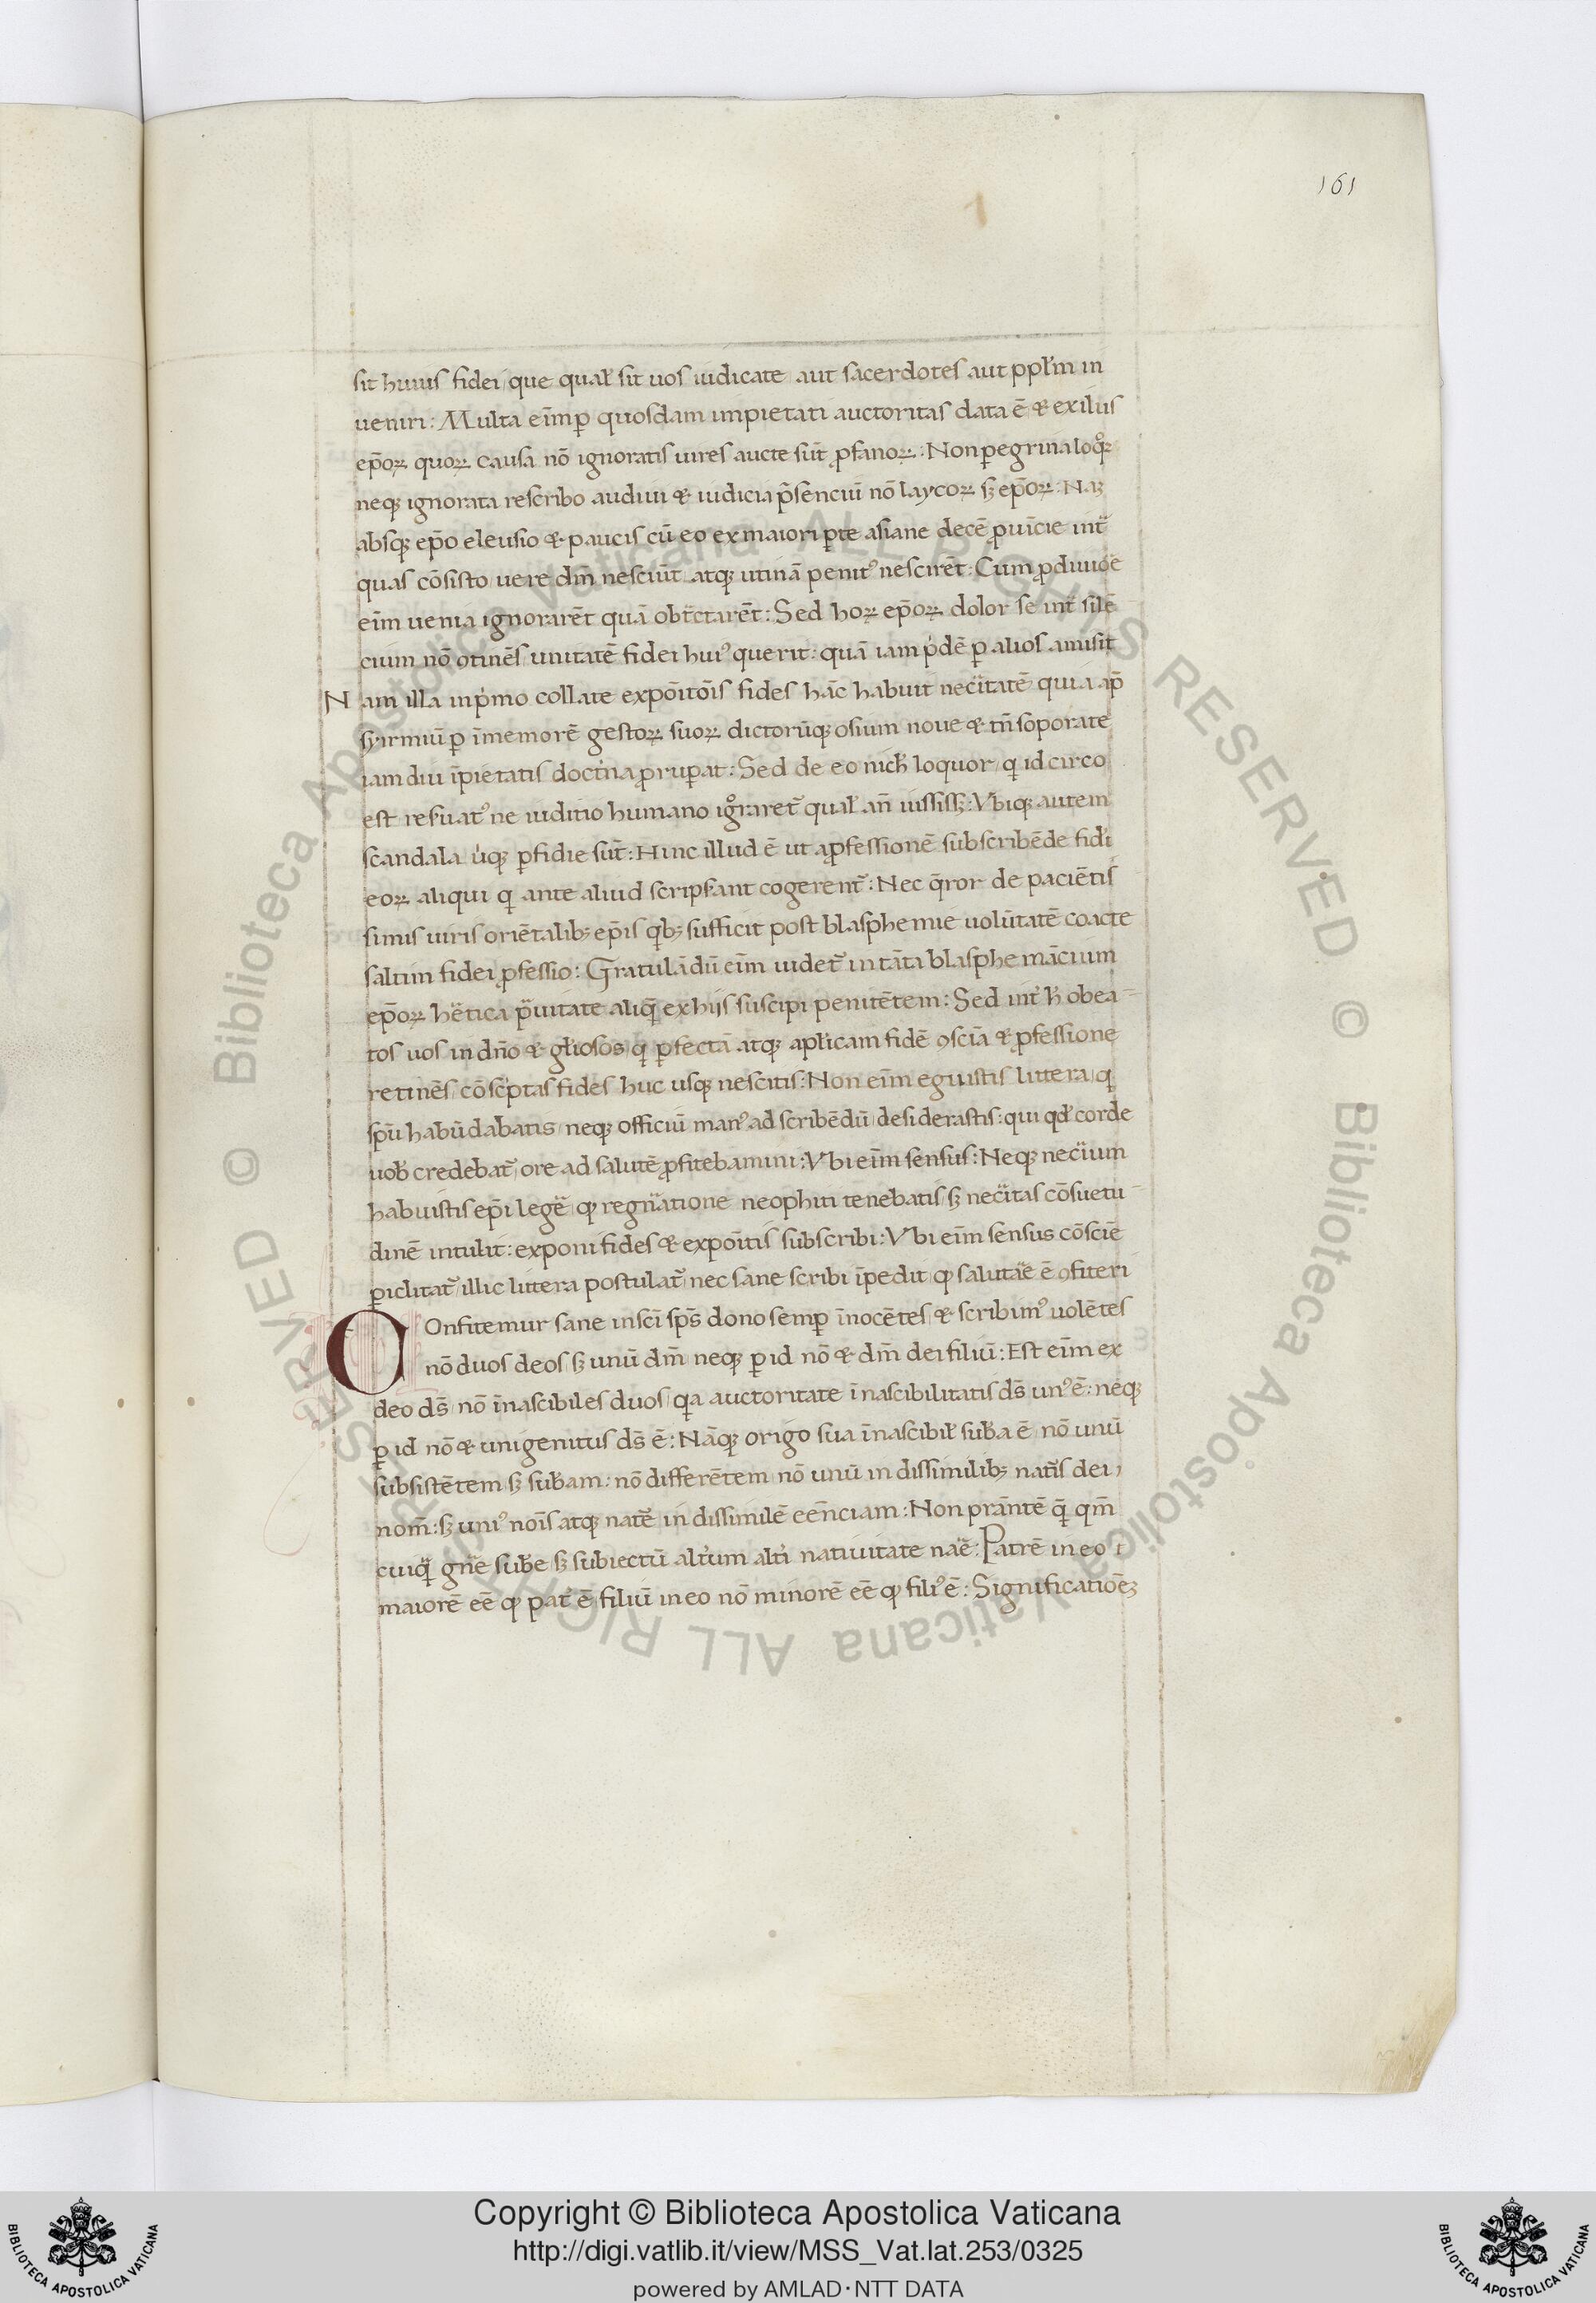 161
sit huius fidei que qual̃ sit uos iudicate aut sacerdotes aut ppl̃m in
ueniri: Multa eīmꝑ quosdam impietati auctoritas data ē & exilijs
ep̄oꝝ quoꝝ causa nō ignoratis uires aucte sūt ꝓfanoꝝ: Non ꝑegrina loqͦr
neqꝫ ignorata rescribo audiui & iudicia p̄senciū nō laycoꝝ sꝫ ep̄oꝝ: Naꝫ
absqꝫ ep̄o eleusio & paucis cū eo ex maiori ꝑte asiane decē ꝓuīcie int̃
quas cōsisto uere dm̄ nesciūt atqꝫ utinā penitꝰ nescirēt: Cum ꝓdiuiōe
eīm uenia ignorarēt quā obt̃ctarēt: Sed hoꝝ ep̄oꝝ dolor se int̃ silē
cium nō ꝯtinēs unitatē fidei huiꝰ querit: quā iam pͥdē ꝑ alios amisit
Nam illa inpͥmo collate expōitōis fides hāc habuit nec̃itatē quia ap̄
syrmiū ꝑ īmemorē gestoꝝ suoꝝ dictorūqꝫ osium noue & tn̄ soporate
iamdiu īpietatis doctͥna ꝓruꝑat: Sed de eo nich̃ loquor qͥ idcirco
est res̃uatꝰ ne iuditio humano igͦraret̃ qual̃ an̄ uississꝫ: Vbiqꝫ autem
scandala uͥqꝫ ꝑfidie sūt: Hinc illud ē ut aꝓfessionē subscribēde fidei
eoꝝ aliqui qͥ ante aliud scrips̃ant cogerent̃: Nec q̄ror de paciētis
simis uiris oriētalibꝫ ep̄is qͥbꝫ sufficit post blasphemie uolūtatē coacte
saltim fidei ꝓfessio: Gratulādū eīm uidet̃ in tāta blasphemācium
ep̄oꝝ hẽtica p̃uitate aliq̄ ex hijs suscipi penitētem: Sed int̃ h̃ o bea
tos uos in dn̄o & gl̃iosos qͥ ꝑfectā atqꝫ apl̃icam fidē ꝯsciā & ꝓfessione
retinēs cōscͥptas fides huc usqꝫ nescitis: Non eīm eguistis littera qͥ
spū habūdabatis neqꝫ officiū manꝰ ad scribēdū desiderastis: qui qd̃ corde
uob̃ credebat̃ ore ad salutē ꝓfitebamini: Vbi eīm sensus: Neqꝫ nec̃ium
habuistis ep̄i leg̃e qͦ regn̄atione neophiti tenebatis sꝫ nec̃itas cōsuetu
dinē intulit: exponi fides & expōitis subscribi: Vbi eīm sensus cōsciē
ꝑiclitat̃ illic littera postulat̃ nec sane scribi īpedit qͦ salutãe ē ꝯfiteri
COnfitemur sane in scī sp̄s dono semꝑ īnocētes & scribimꝰ uolētes
nō duos deos sꝫ unū dm̄ neqꝫ ꝑ id nō & dm̄ dei filiū: Est eīm ex
deo ds̄ nō īnascibiles duos qͥa auctoritate īnascibilitatis ds̄ unꝰ ē: neqꝫ
ꝑ id nō & unigenitus ds̄ ē: Nāqꝫ origo sua īnascibil̃ sub̃a ē nō unū
subsistētem sꝫ sub̃am: nō differētem nō unū in dissimilibꝫ nat̃is dei
nom̄: sꝫ uniꝰ noīs atqꝫ nat̃e in dissimilē eēnciam: Non prāntē q̄ qm̄
cuiq̃ gn̄e sub̃e sꝫ subiectū alt̃um alt̃i natiuitate nãe: Patrē in eo
maiorē eē qͦ pat̃ ē filiū in eo nō minorē eē qͦ filiꝰ ē: Significatiōeꝫ
Copyright © Biblioteca Apostolica Vaticana
http://digi.vatlib.it/view/MSS_Vat.lat.253/0325
powered by AMLAD·NTT DATA